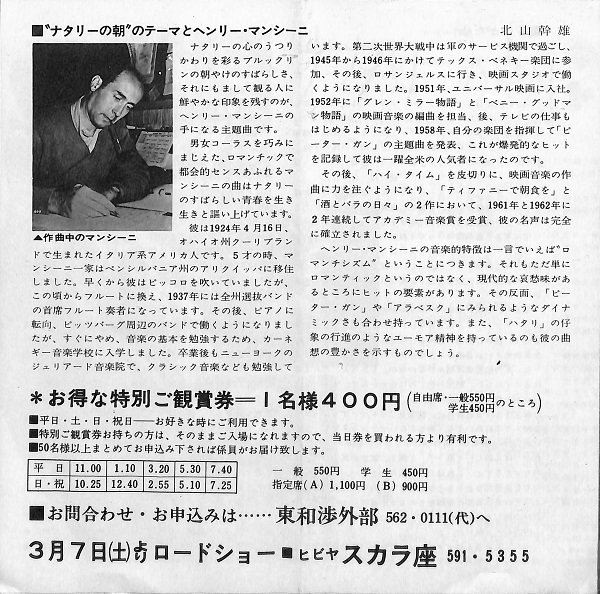 ■〝ナタリーの朝〟のテーマとヘンリー・マンシーニ
北山幹雄
ナタリーの心のうつり
かわりを彩るブルックリ
ンの朝やけのすばらしさ、
それにもまして観る人に
鮮やかな印象を残すのが、
ヘンリー・マンシーニの
手になる主題曲です。
男女コーラスを巧みに
まじえた、ロマンチックで
都会的センスあふれるマ
ンシーニの曲はナタリー
のすばらしい青春を生き
生きと謳い上げています。
彼は1924年4月16日、
オハイオ州クーリブラン
▲作曲中のマンシーニ
ドで生まれたイタリア系アメリカ人です。5才の時、マ
ンシーニ一家はペンシルバニア州のアリクイッパに移住
しました。早くから彼はピッコロを吹いていましたが、
この頃からフルートに換え、1937年には全州選抜バンド
の首席フルート奏者になっています。その後、ピアノに
転向、ピッツバーグ周辺のバンドで働くようになりまし
たが、すぐにやめ、音楽の基本を勉強するため、カーネ
ギー音楽学校に入学しました。卒業後もニューヨークの
ジェリアード音楽院で、クラシック音楽なども勉強して
います。第二次世界大戦中は軍のサービス機関で過ごし、
1945年から1946年にかけてテックス・ベネキー楽団に参
加、その後、ロサンジェルスに行き、映画スタジオで働
くようになりました。1951年、ユニバーサル映画に入社。
1952年に「グレン・ミラー物語」と「ベニー・グッドマ
ン物語」の映画音楽の編曲を担当、後、テレビの仕事も
はじめるようになり、1958年、自分の楽団を指揮して「ピ
ーター・ガン」の主題曲を発表、これが爆発的なヒット
を記録して彼は一躍全米の人気者になったのです。
その後、「ハイ・タイム」を皮切りに、映画音楽の作
曲に力を注ぐようになり、「ティファニーで朝食を」と
「酒とバラの日々」の2作において、1961年と1962年に
2年連続してアカデミー音楽賞を受賞、彼の名声は完全
に確立されました。
ヘンリー・マンシーニの音楽的特徴は一言でいえば〝ロ
マンチシズム〟ということにつきます。それもただ単に
ロマンティックというのではなく、現代的な哀愁味があ
るところにヒットの要素があります。その反面、「ピー
ター・ガン」や「アラベスク」にみられるようなダイナ
ミックさも合わせ持っています。また、「ハタリ」の仔
象の行進のようなユーモア精神を持っているのも彼の曲
想の豊かさを示すものでしょう。
＊お得な特別ご観賞券＝1名様400円(自由席・一般550円 学生450円のところ)
■平日・土・日・祝日――お好きな時にご利用できます。
■特別ご観賞券お持ちの方は、そのままご入場になれますので、当日券を買われる方より有利です。
■50名様以上まとめてお申込み下されば係員がお届け致します。
平日 11.00 1.10 3.20 5.30 7.40
日・祝 10.25 12.40 2.55 5.10 7.25
一般 550円 学生 450円
指定席(A) 1,100円 (B) 900円
■お問合わせ・お申込みは……東和渉外部 562・0111(代)へ
3月7日(土)よりロードショー■ヒビヤスカラ座 591・5355